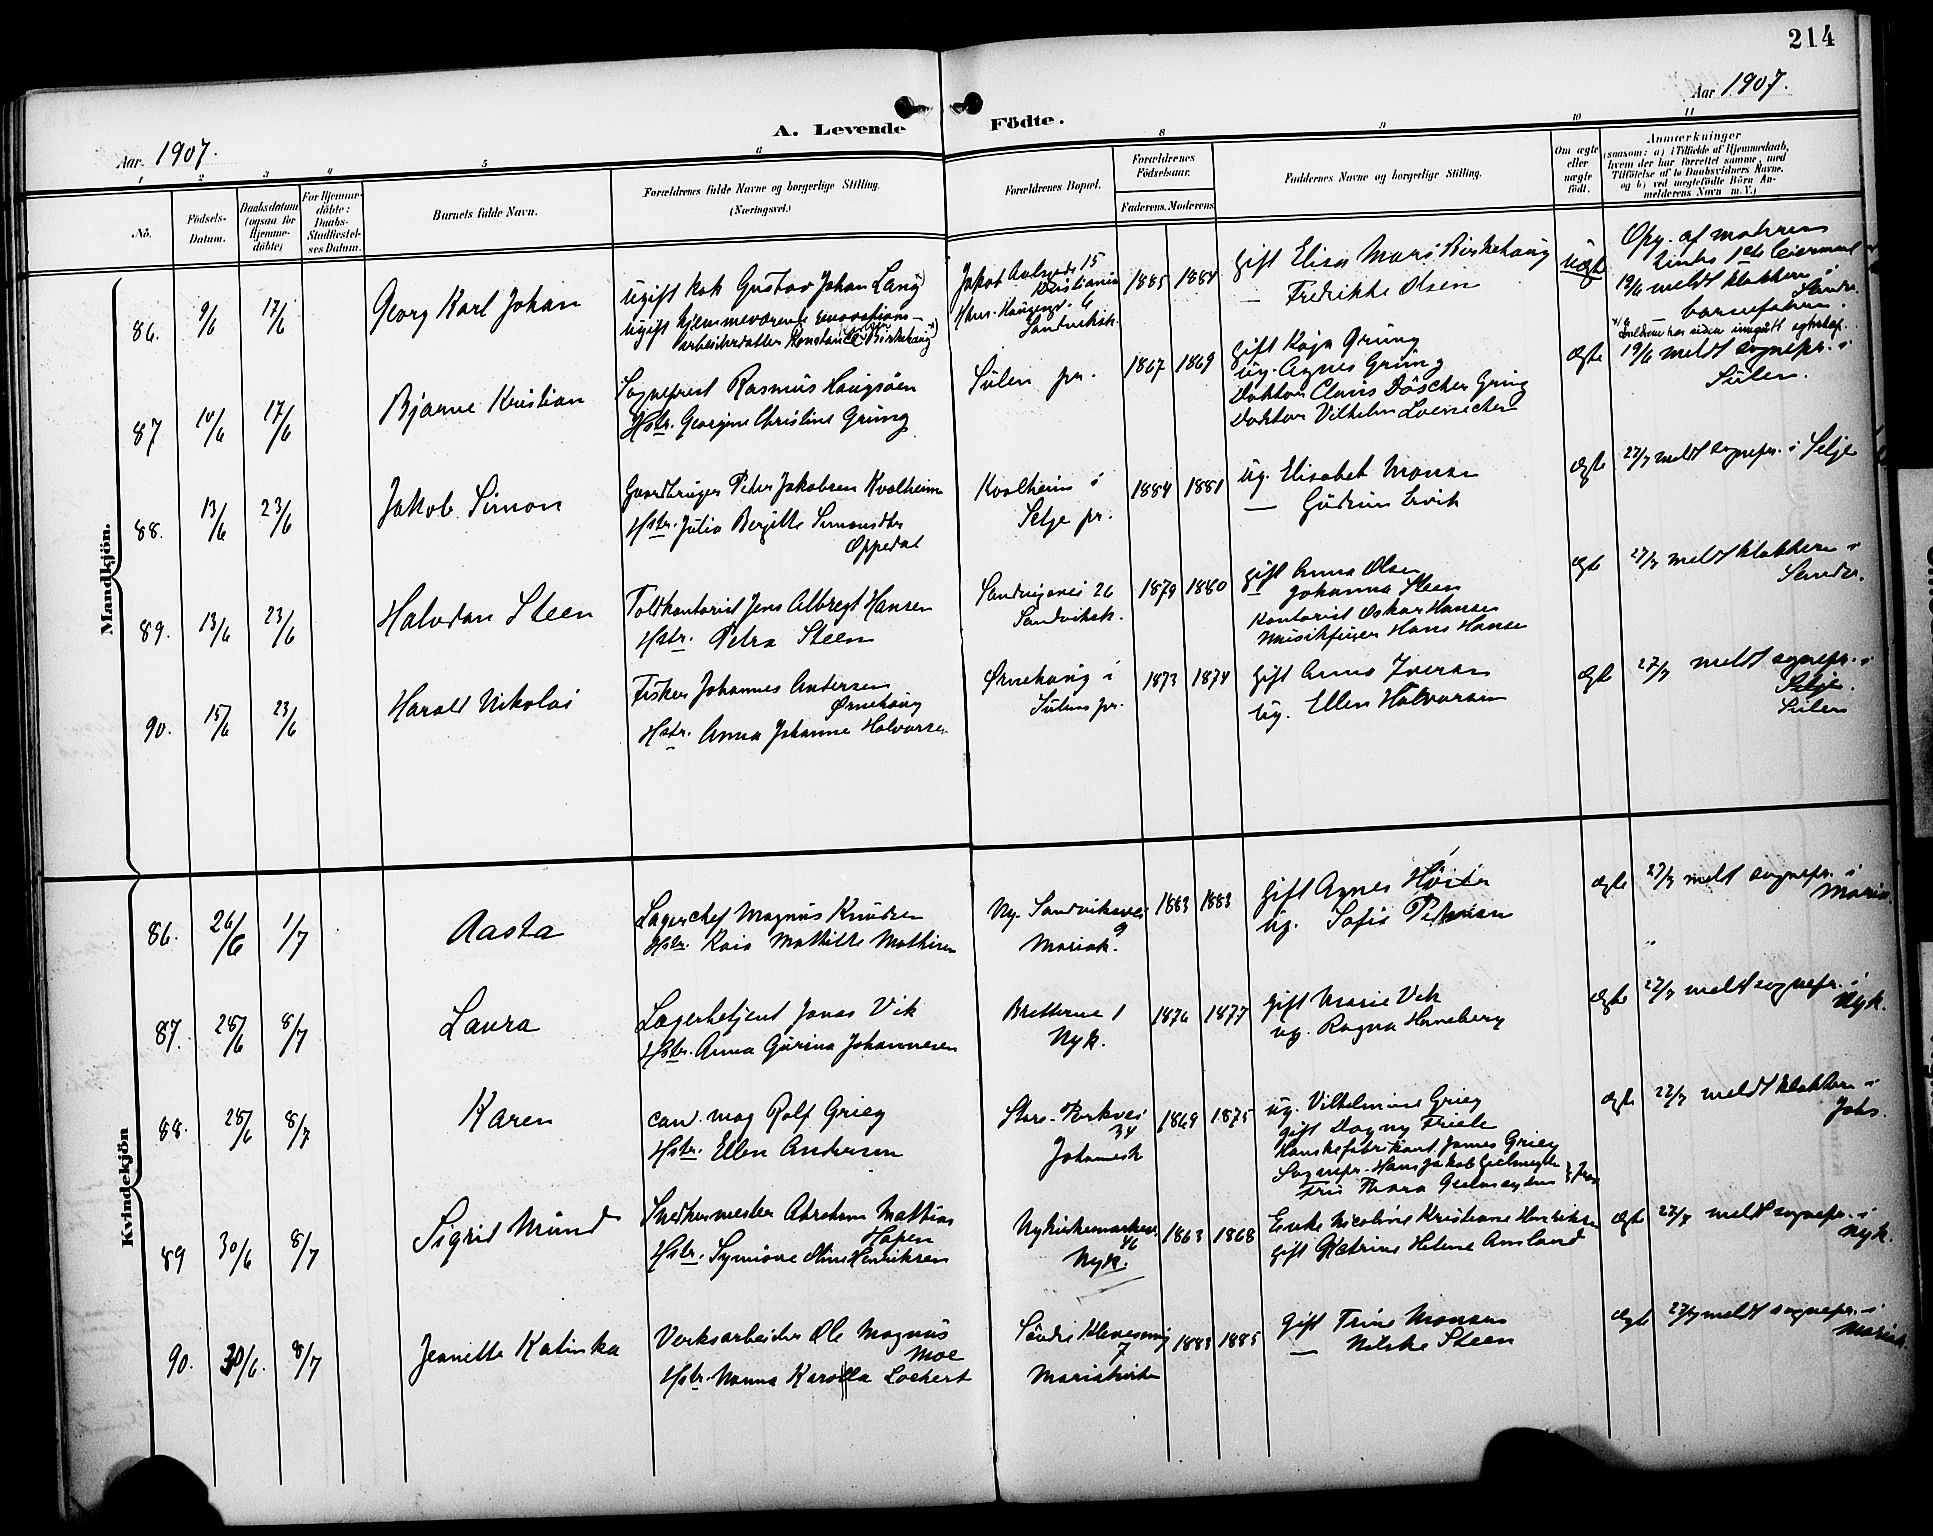 214
Aar 1907.
Aar 1907.
A. Levende Födte.
1 2 3 4 5 6 8 9 10 11
No.
Födsels-Datum.
Daabsdatum (ogsaa for Hjemme-döbte)
For Hjemme-döbte: Daabs-Stadfæstel-ses Datum.
Barnets fulde Navn.
Forældrenes fulde Navne og borgerlige Stilling. (Næringsvei.)
Forældrenes Bopæl.
Forældrenes Födselsaar.
Faderens. Moderens
Faddernes Navne og borgerlige Stilling.
Om ægte eller uægte födt.
Anmærkninger
(saasom: a) i Tilfælde af Hjemmedaab, hvem der har forrettet samme, med Tilföielse af to Daabsvidners Navne, og b) ved uægtefödte Börn An-melderens Navn m. V.)
Mandkjön.
86. 9/6 17/6 Georg Karl Johan
Ugift kok Gustav Johan Lang
ugift hjemmeværende renovations-
arbeiderdatter Konstance Birkehaug
Kristiania
Sandviksk.
1885 1884
gift Elisa Mari Birkehaug
— Fredrikke Olsen
Uægte
Opg. af moderen
19/6 meldt klokkeren i Sandv.
barnefaderen.
87 10/6 17/6 Bjarne Kristian
Sogneprest Rasmus Haugsöen
Hstr. Georgine Christine Grung
Sulen pr.
1867 1869
gift Kaja Grung
ug. Agnes Grung
Doktor Claus Döscher Grung
Doktor Vilhelm
ægte
19/6 meldt sognepr. i
Sulen.
88. 13/6 23/6 Jakob Simon
Gaardbruger Peter Jakobsen Kvalheim
Hstr. Julia Bergitte Simonsdtr
Oppedal
Kvalheim i
Selje pr.
1884 1881
ug. Elisabet Monsen
— Gudrun Ervik
ægte
27/7 meldt sognepr. i Selje
89. 13/6 23/6 Halvdan Steen
Toldkontorist Jens Albregt Hansen
Hstr. Petra Steen
Sandvigsvei 26
Sandviksk.
1879 1880
gift Anna Olsen
Johanna Steen
Kontorist Oskar Hansen
Hans Hansen
ægte
27/7 meldt klokkeren i
Sandv.
90. 15/6 23/6 Harald Nikolai
Fisker Johannes Andersen
Ørnehaug
Hstr. Anna Johanne Halvorsen
Ørnehaug i
Sulens pr.
1873 1874
gift Anna Iversen
ug. Ellen Halvorsen
ægte
27/7 meldt sognepr. i
Selje.
Sulen
Kvindekjön
86. 26/6 1/7 Aasta
Lagerchef Magnus Knudsen
Hstr. Kaia Mathilde Mathisen
Ny. Sandviksvei
9
Mariak.
1883 1883
gift Agnes
ug. Sofie
ægte
27/7 meldt sognepr. i
Mariak.
87. 28/6 8/7 Laura
Lagerbetjent Jonas Vik
Hstr. Anna Gurina Johannesen
Bretterne 1
Nyk.
1876 1877
gift Marie Vik
ug. Ragna Henneberg
ægte
27/7 meldt sognepr. i
Nyk.
88. 28/6 8/7 Karen
cand. mag Rolf Grieg
Hstr. Ellen Andersen
Store Parkvei
34
Johannesk
1869 1875
ug. Vilhelmine Grieg
gift Dagny Friele
Hanskefabrikant James Grieg
Sognepr. Hans Jakob Geelmuyden
Fru Thora Geelmuyden
ægte
27/7 meldt klokkeren i
Johs.
89 30/6 8/7 Sigrid Mund
Snedkermester Abraham Mathias
Hopen
Hstr. Synnöve Oline Henriksen
Nykirkesmarken
46
Nyk.
1863 1868
Enke Nicoline Kristiane Henriksen
gift Katrine Helene Amland
ægte
27/7 meldt sognepr. i
Nyk.
90. 30/6. 8/7 Jeanette Katinka
Verksarbeider Ole Magnus
Moe
Hstr. Nanna Karolla Lockert
Söndre Klevesmug
7
Mariakirke
1883 1885
gift Trine Monsen
— Milska Steen
ægte
27/7 meldt sognepr. i
Mariak.